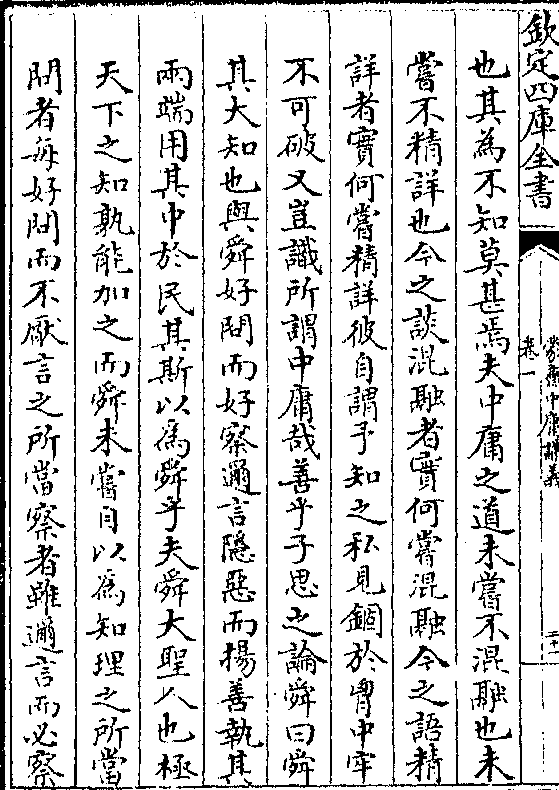 欽定四庫全書
蒙齋中庸講義
卷一
二十一
也其為不知莫甚焉夫中庸之道未嘗不混融也未
嘗不精詳也今之談混融者實何嘗混融今之語精
詳者實何嘗精詳彼自謂予知之私見錮於胷中牢
不可破又豈識所謂中庸哉善乎子思之論舜曰舜
其大知也與舜好問而好察邇言隱惡而揚善執其
兩端用其中於民其斯以為舜乎夫舜大聖人也極
天下之知孰能加之而舜未嘗自以為知理之所當
問者每好問而不厭言之所當察者雖邇言而必察